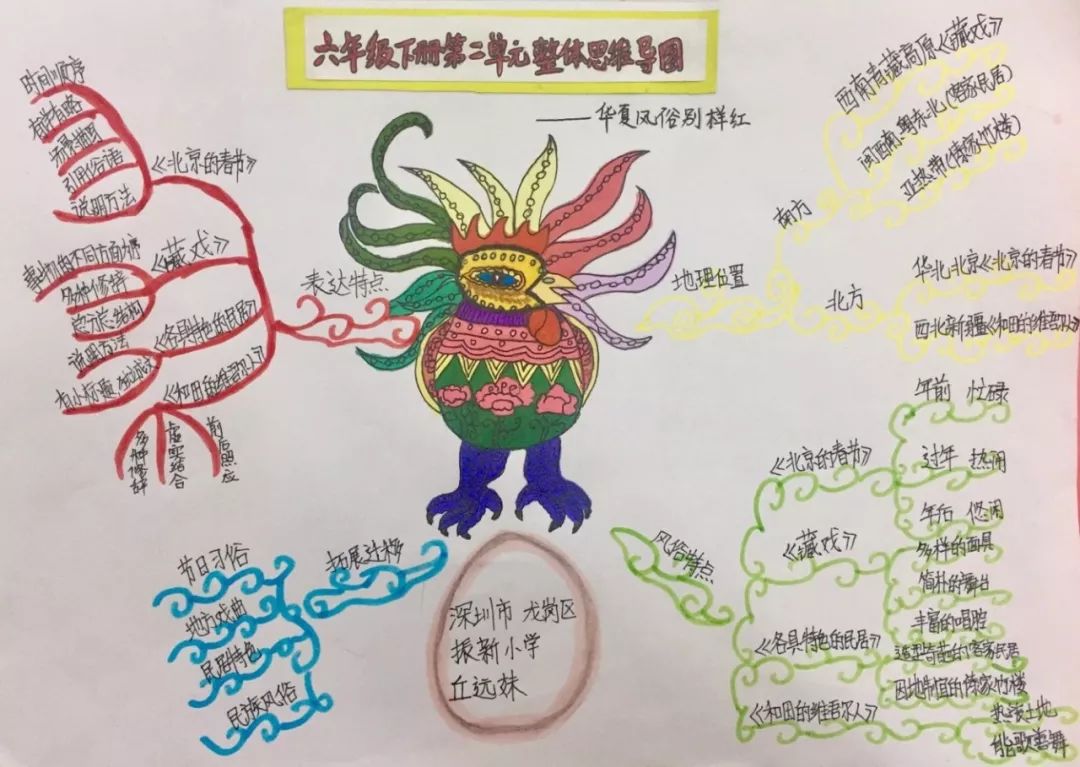 六年级下册第二单元整体思维导图
——华夏风俗别样红
表达特点
《北京的春节》
时间顺序
有详有略
场景描写
引用俗语
说明方法
《藏戏》
事物的不同方面为序
多种修辞
总分总结构
《各具特色的民居》
说明方法
有小标题
《和田的维吾尔人》
多种修辞
虚实结合
前后照应
地理位置
南方
西南青藏高原《藏戏》
闽西南、粤东北(客家民居)
亚热带(傣家竹楼)
北方
华北:北京《北京的春节》
西北:新疆《和田的维吾尔人》
拓展迁移
节日习俗
地方戏曲
民居特色
民族风俗
深圳市 龙岗区
振新小学
丘远妹
风俗特点
《北京的春节》
年前 忙碌
过年 热闹
年后 悠闲
《藏戏》
多样的面具
简朴的舞台
丰富的唱腔
《各具特色的民居》
造型奇葩的客家民居
因地制宜的傣家竹楼
《和田的维吾尔人》
热爱土地
能歌善舞